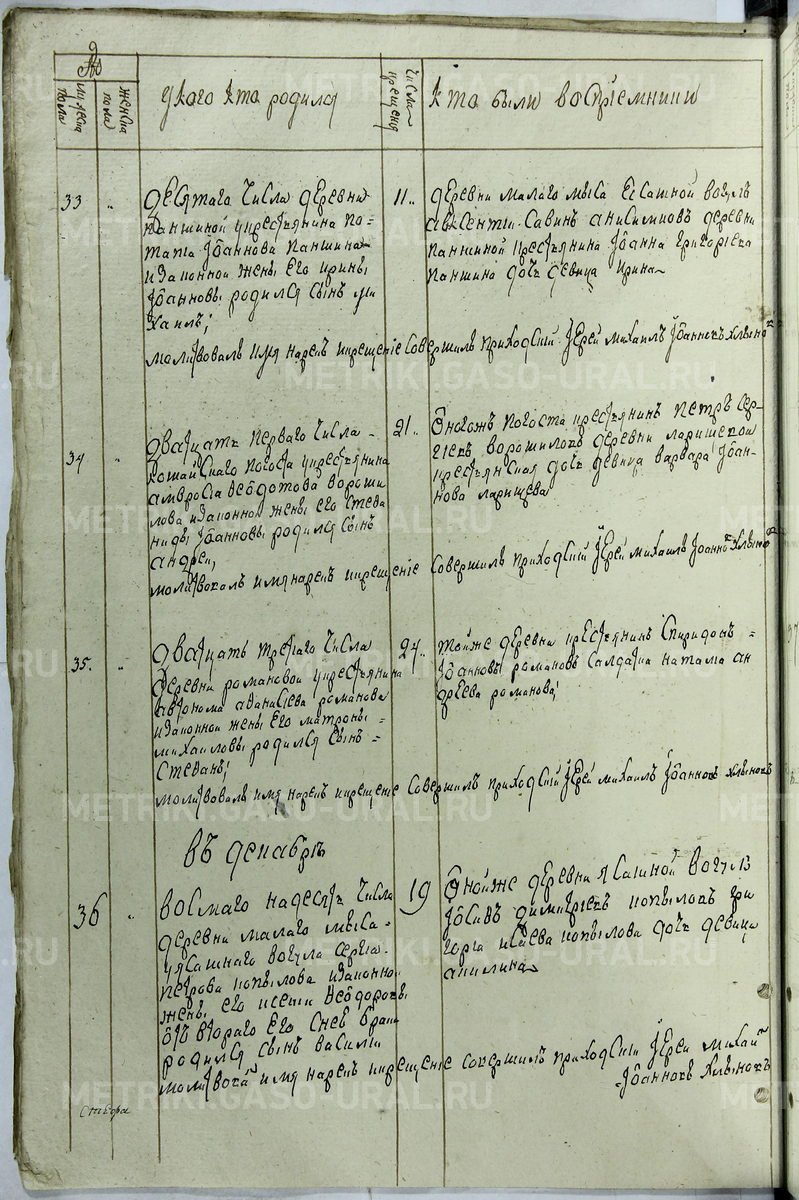 мужеска пола
женска пола
у кого кто родился
числа крещения
кто были восприемники
33
десятаго числа деревни
Паншиной у крестьянина По-
тапа Iоаннова Паншина
и законной жены его Ирины
Iоанновы родился сынъ Ми
хаилъ;
11
деревни Малаго Мыса есашной вогулъ
Авксентий Савинъ Анисимковъ деревни
Паншиной крестьянина Iоанна Григориева
Паншина дочь девица Ирина
молитвовалъ имя нарекъ и крещение совершилъ приходский иерей Михаилъ Iоанновъ Хлыновъ
34
дватцать перваго числа
Кошайскаго погоста у крестьянина
Амвросiа Ѳеодотова Вороши
лова и законной жены его Стефа
ниды Iоанновы родился сынъ
Андрей,
21
Оногожъ погоста крестьянинъ Петръ Сер-
гиевъ Ворошиловъ деревни Ларишевой
крестьянская дочь девица Варвара Iоан-
нова Ларищева
молитвовалъ имя нарекъ и крещение совершилъ приходский иерей Михаилъ Iоанновъ Хлыновъ
35.
дватцать третiаго числа
деревни Романовой у крестьянина
Автонома Аѳанасиева Романова
и законной жены его Матроны
Михаиловы родился сынъ
Стефанъ;
24
тойже деревни крестьянинъ Спиридонъ
Iоанновъ Романовъ салдатка Наталiа Ан
дреева Романова;
молитвовалъ имя нарекъ и крещение совершилъ приходский иерей Михаилъ Iоанновъ Хлыновъ
въ декабрѣ
36
восмаго надесять числа
деревни Малаго Мыса
у ясашнаго вогула Сергiа
Петрова Копылова и законной
жены его Ксении Ѳеодоровы
отъ втораго его снею брака
родился сынъ Василий
19
Онойже деревни ясашной вогулъ
Iосифъ Димитриевъ Копыловъ Гри
гориа Исаева Копылова дочь девица
Акилина
молитвовалъ имя нарекъ и крещение совершилъ приходский иерей Михаилъ
Iоанновъ Хлыновъ
METRIKI.GASO-URAL.RU